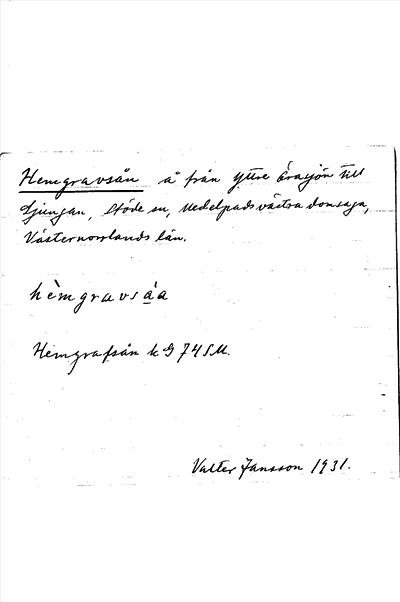 Hemgravsån å från Yttre Örasjön till
Ljungan, Stöde sn, Medelpads västra domsaga,
Västernorrlands län.
hè̀mgravså̀a
Hemgrafsån k G 74 SM.
Valter Jansson 1931.